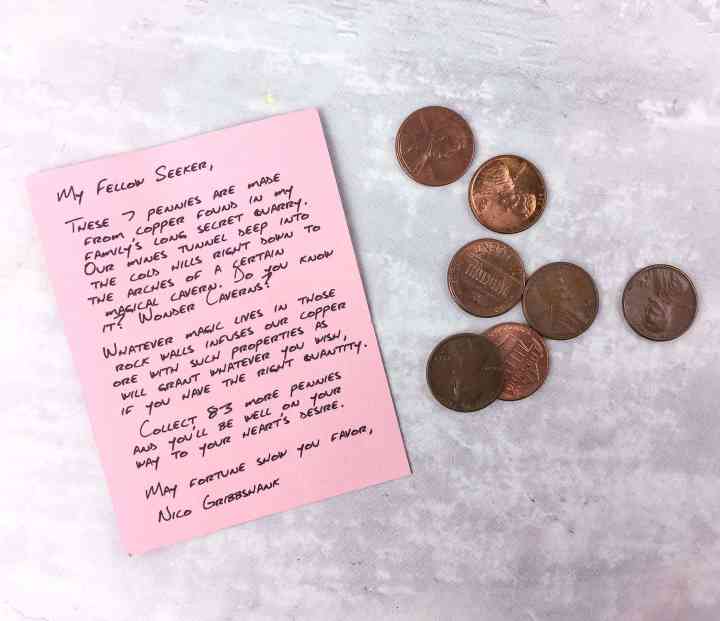 My Fellow Seeker,
These 7 pennies are made
from copper found in my
family's long secret quarry.
Our mines tunnel deep into
the cold hills right down to
the arches of a certain
magical cavern. Do you know
it? Wonder Caverns?
Whatever magic lives in those
rock walls infuses our copper
ore with such properties as
will grant whatever you wish,
if you have the right quantity.
Collect 83 more pennies
and you'll be well on your
way to your heart's desire.
May fortune show you favor,
Nico Gribbswank